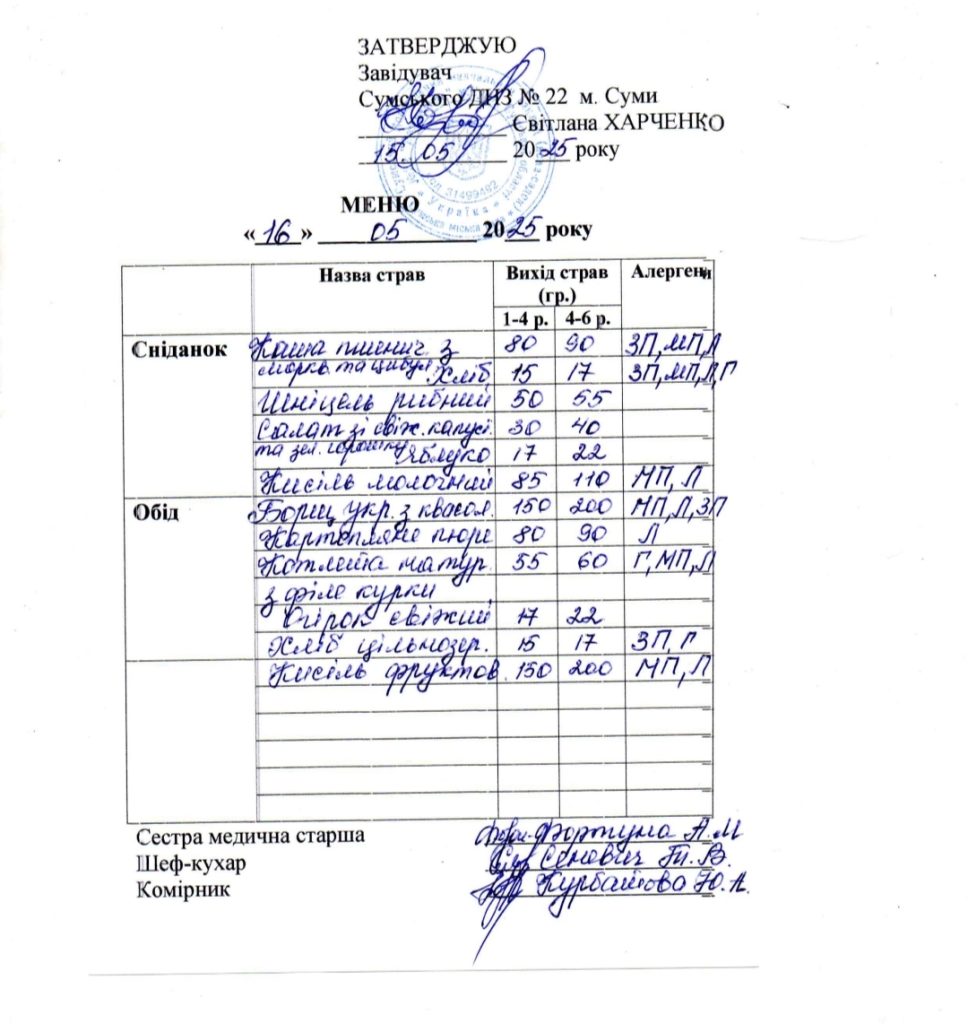 ЗАТВЕРДЖУЮ
Завідувач
Сумського ДНЗ № 22 м. Суми
Світлана ХАРЧЕНКО
15. 05 2025 року
31499492
Україна
МЕНЮ
«16» 05 2025 року
Назва страв Вихід страв (гр.) Алергени
1-4 р. 4-6 р.
Сніданок Каша пшенич. з 80 90 ЗП, МП, Л
моркв. та цибул. Хліб 15 17 ЗП, МП, Л, Г
Шніцель рибний 50 55
Салат зі свіж. капусі. 30 40
та зел. горошку Яблуко 17 22
Кисіль молочний 85 110 МП, Л
Обід Борщ укр. з квасол. 150 200 МП, Л, ЗП
Картопляне пюре 80 90 Л
Котлета натур. 55 60 Г, МП, Л
з філе курки
Огірок свіжий 17 22
Хліб цільнозер. 15 17 ЗП, Г
Кисіль фруктов. 150 200 МП, Л
Сестра медична старша Фортуна А.М
Шеф-кухар Сенович Т. В.
Комірник Курбатова Ю. А.